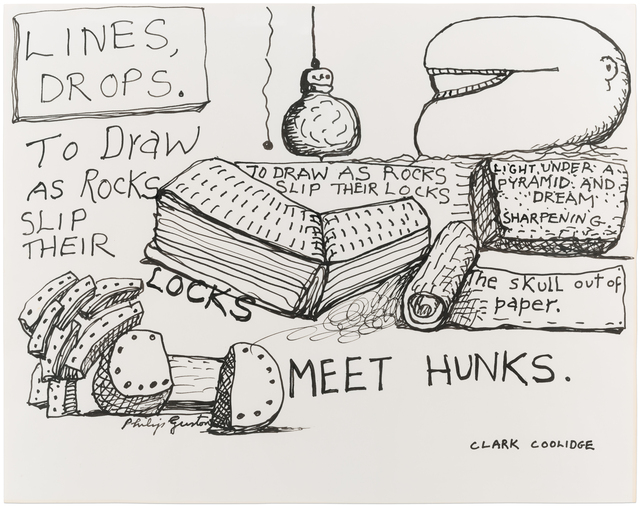 LINES,
DROPS.
To Draw
AS ROCKS
SLIP
THEIR
LOCKS
TO DRAW AS ROCKS
SLIP THEIR LOCKS
LIGHT UNDER A
PYRAMID AND
DREAM
SHARPENING
The skull out of
paper.
MEET HUNKS.
Philip Guston
CLARK COOLIDGE